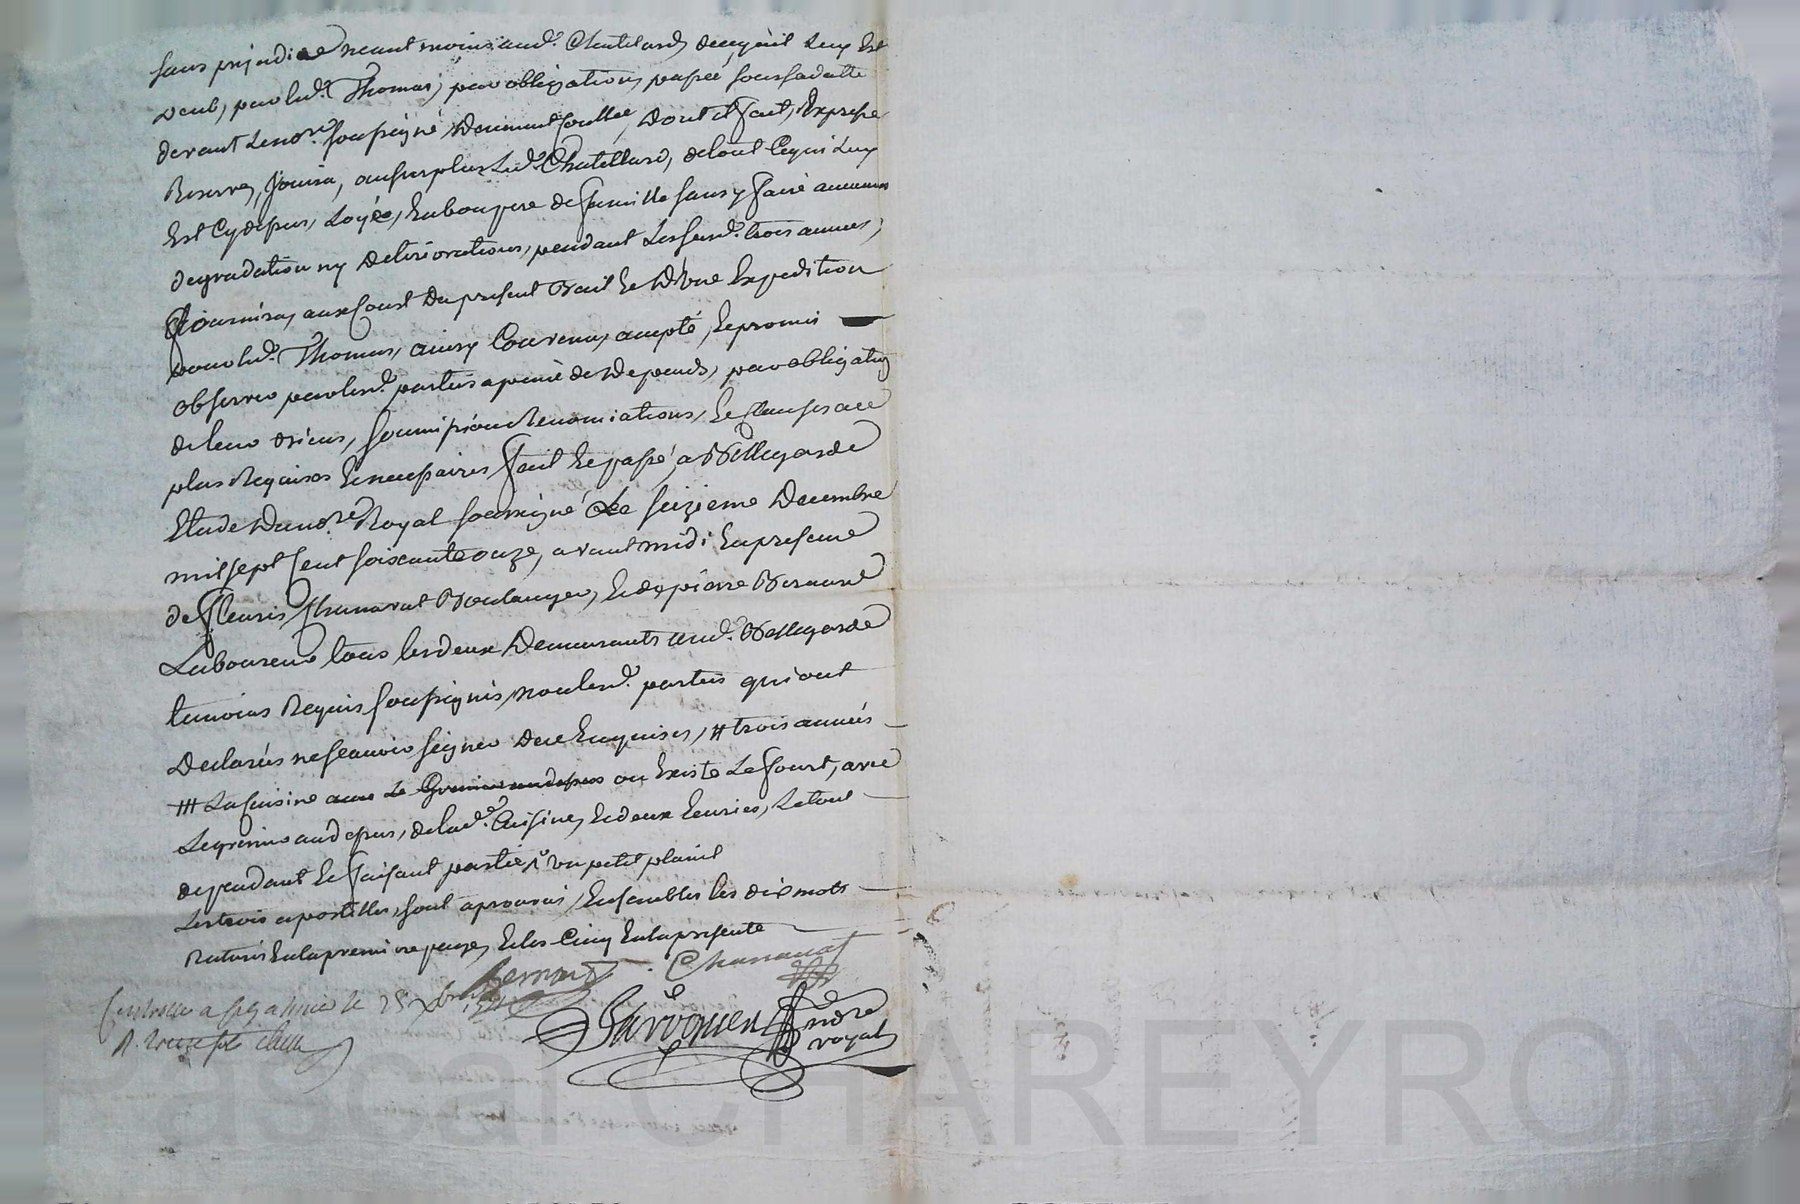 sans prejudice neant moins aud. Chatelard de ce qu'il luy est
deub, par led. Thomas, par obligation, passée sous sa datte
devant le nore soussigné, deuement conllée, dont il fait, expresse
Reserve, Jouira, au surplus led. Chatellard, de tout ce qui luy
est cy dessus, Loyée, en bon pere de famille sans y faire aucunes
degradation ny deteriorations, pendant lesd. trois années,
fournira, aux Coust du present Bail et d'une Expedition
pour led. Thomas, ainsy Convenu, accepté, et promis
observer par lesd. parties a peine de depends, par obligation
de leur biens, soumissions Renonciations, et Clauses ace
plus Requises et necessaires, fait et passé, a Bellegarde
Etude du nore Royal soussigné Le seizieme Decembre
mil sept cent soixante onze, avant midi en presence
de fleuris Chanavat Boulanger, et de pierre Bernard
Laboureur tous les deux Demeurants aud. Bellegarde
temoins Requis soussignés, non lesd. parties qui ont
Declarés ne scavoir signer de ce Enquises, # trois années
Lacuisine ou Existe Le fourt, avec
Legrenier au dessus, de lad. Cuisine, et deux Ecuries, Letout
dependant et faisant partie, un petit plain
Les trois apostilles, sont aprouvés, Ensembles les dix mots
Raturés en la premiere page, et les Cinq en la presente
Bernard Chanavat
nore royal
Controlle a le 25
R.
Pascal CHAREYRON